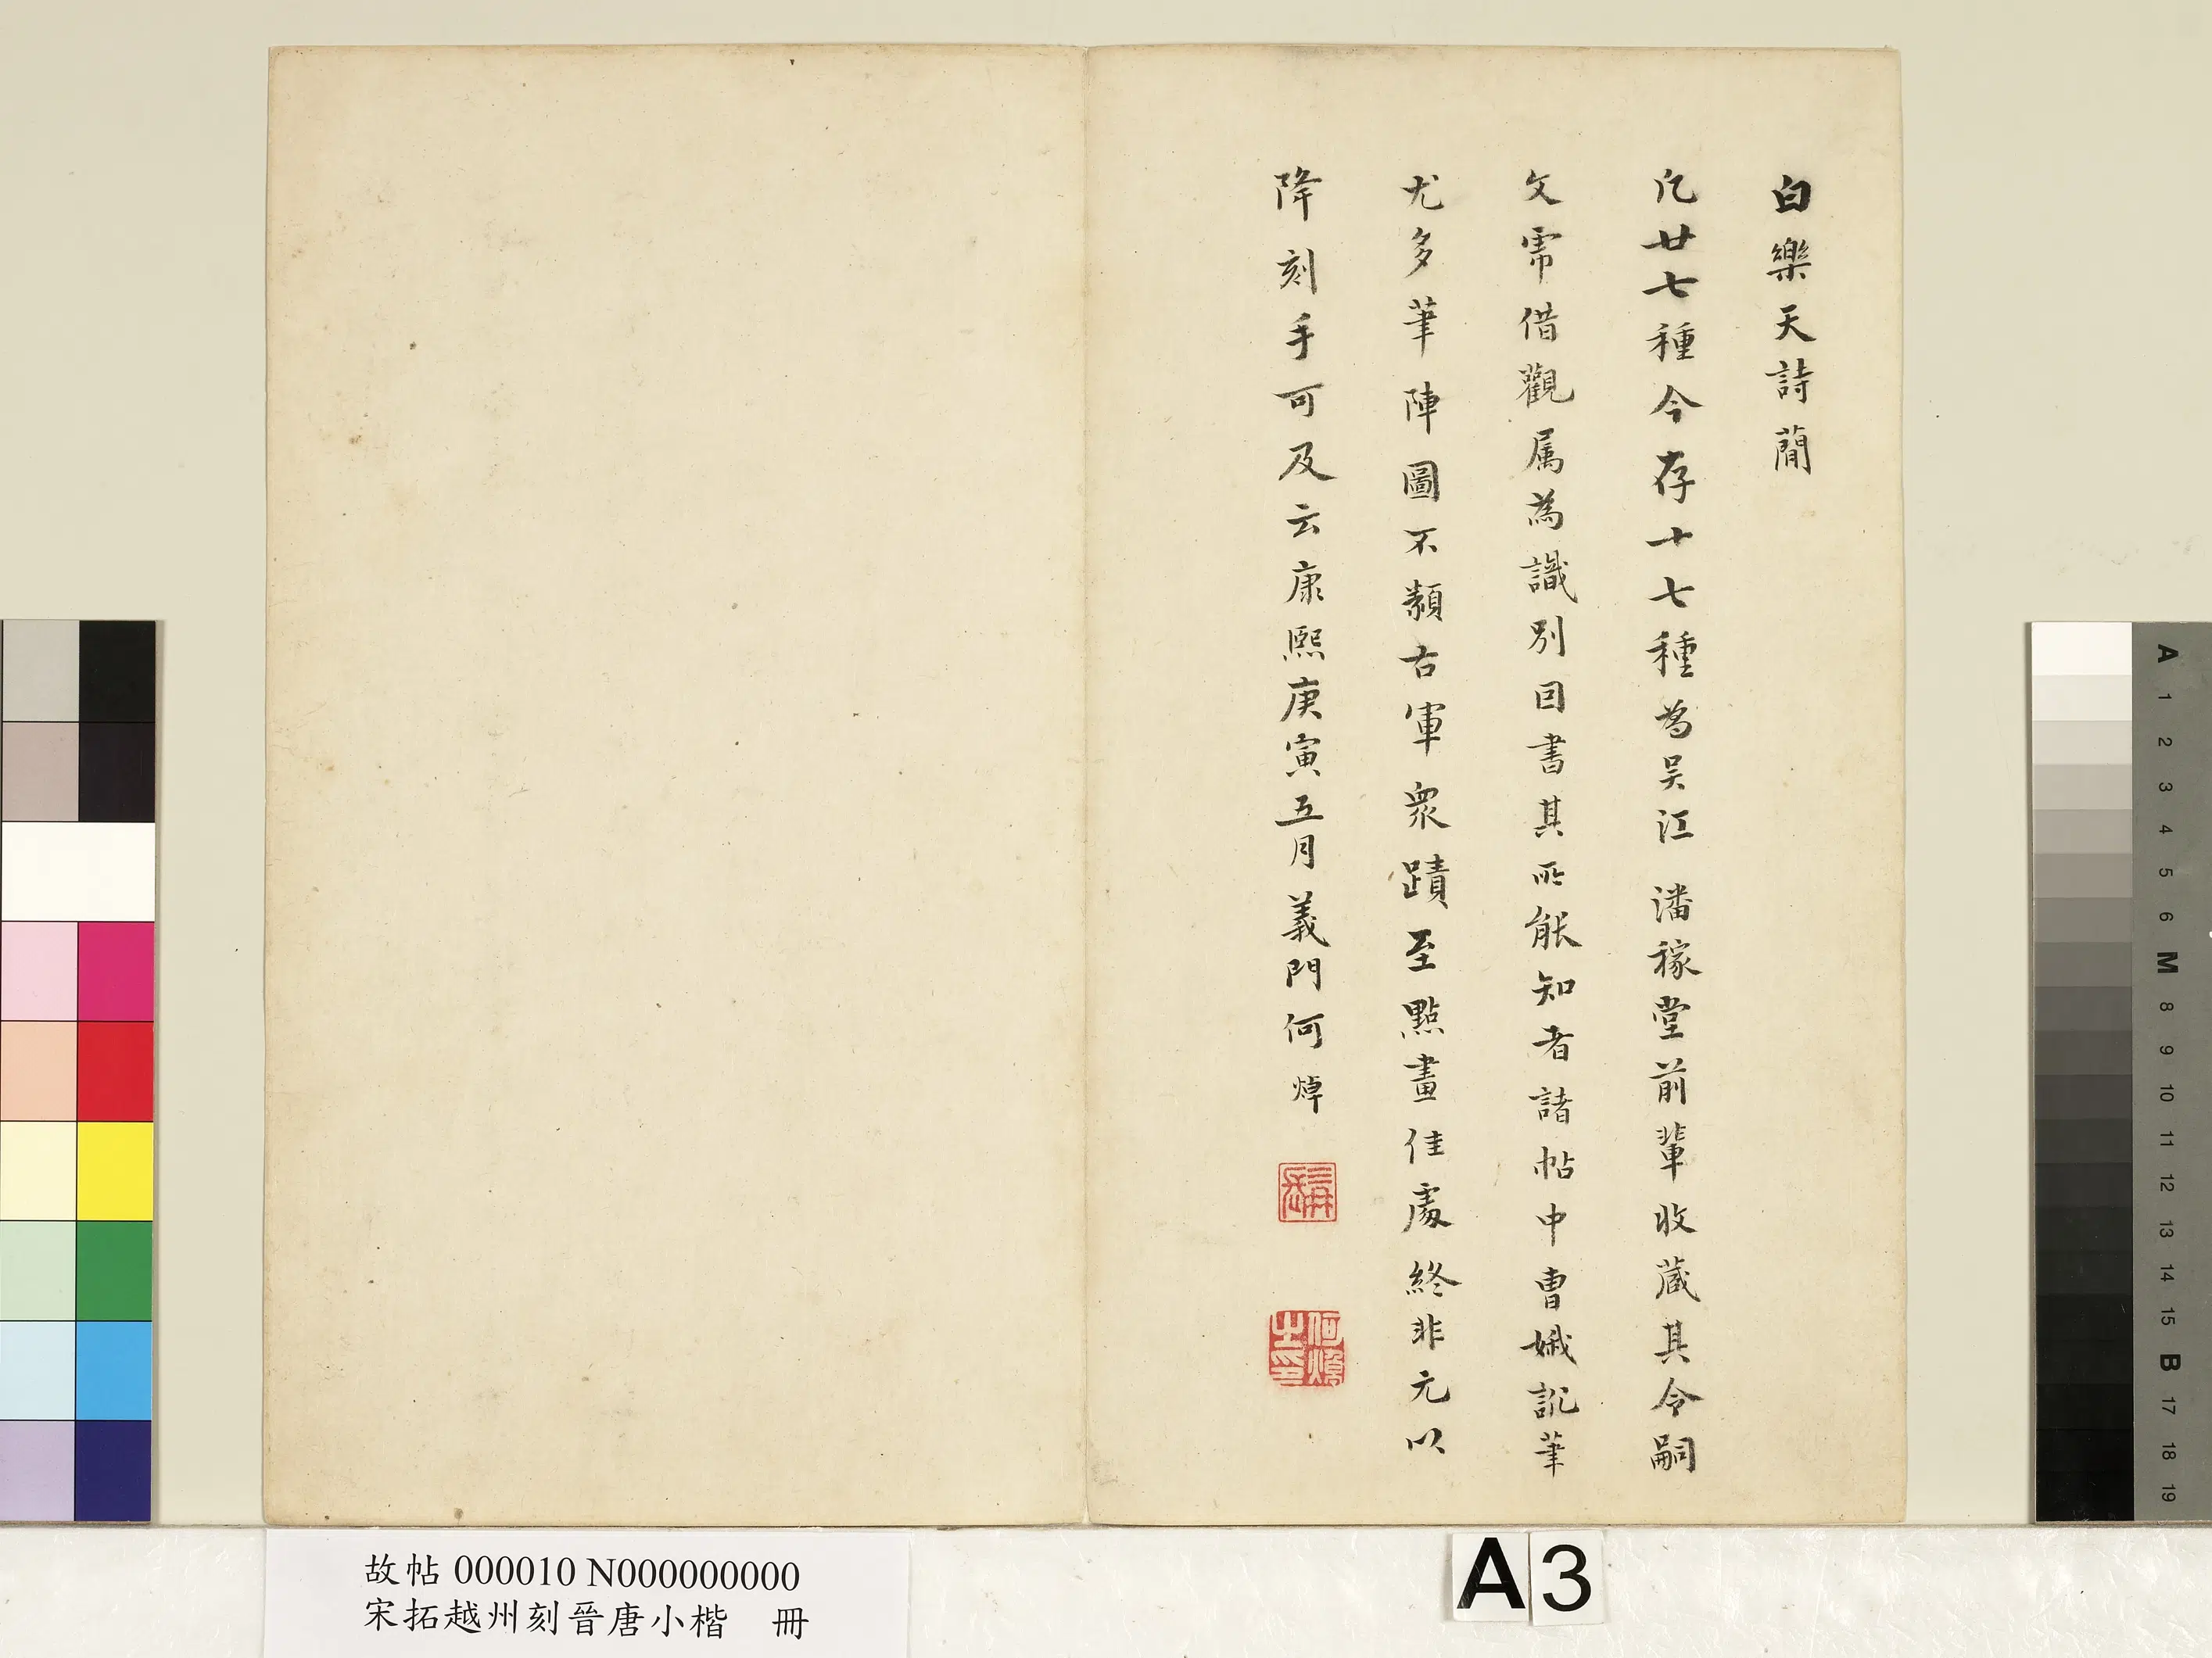 白樂天詩蕳
凡廿七種今存十七種為吴江潘稼堂前輩收蔵其令嗣
文虎借觀属為識別因書其所能知者諸帖中曹娥訛筆
尤多筆陣圖不類右軍衆蹟至點畫佳處終非元以
降刻手可及云康熙庚寅五月義門何焯
何焯之印
故帖 000010 N000000000
宋拓越州刻晉唐小楷 冊
A3
A
1
2
3
4
5
6
M
8
9
10
11
12
13
14
15
B
17
18
19